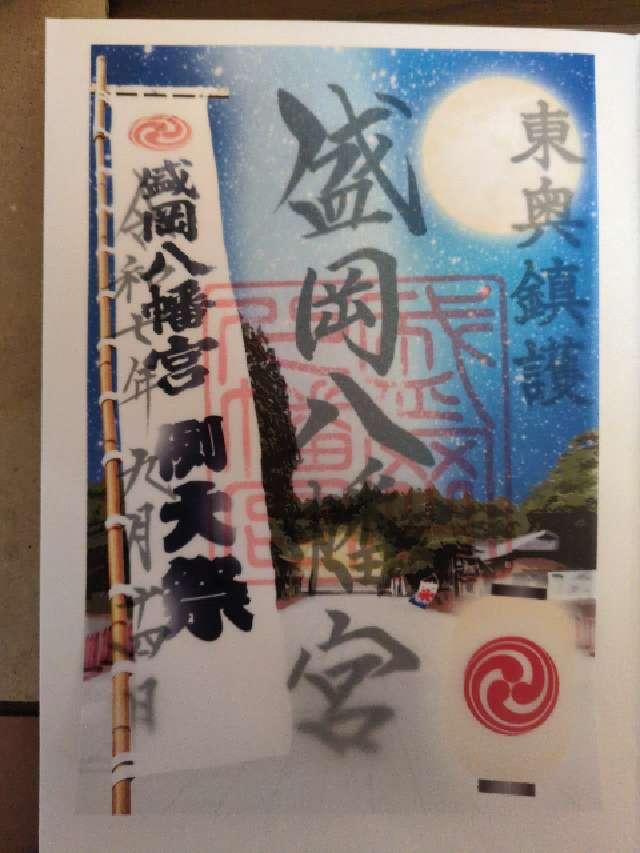 東奥鎮護
盛岡八幡宮
盛岡八幡宮 例大祭
令和七年 九月廿四日